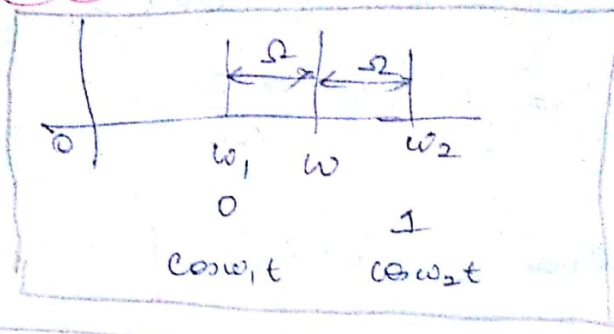 Ω Ω
0 ω₁ ω ω₂
0 1
cosω₁t cosω₂t